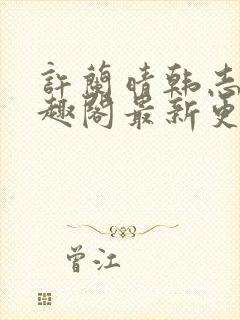 許蘭晴韩志
趣閣最新更
曾江